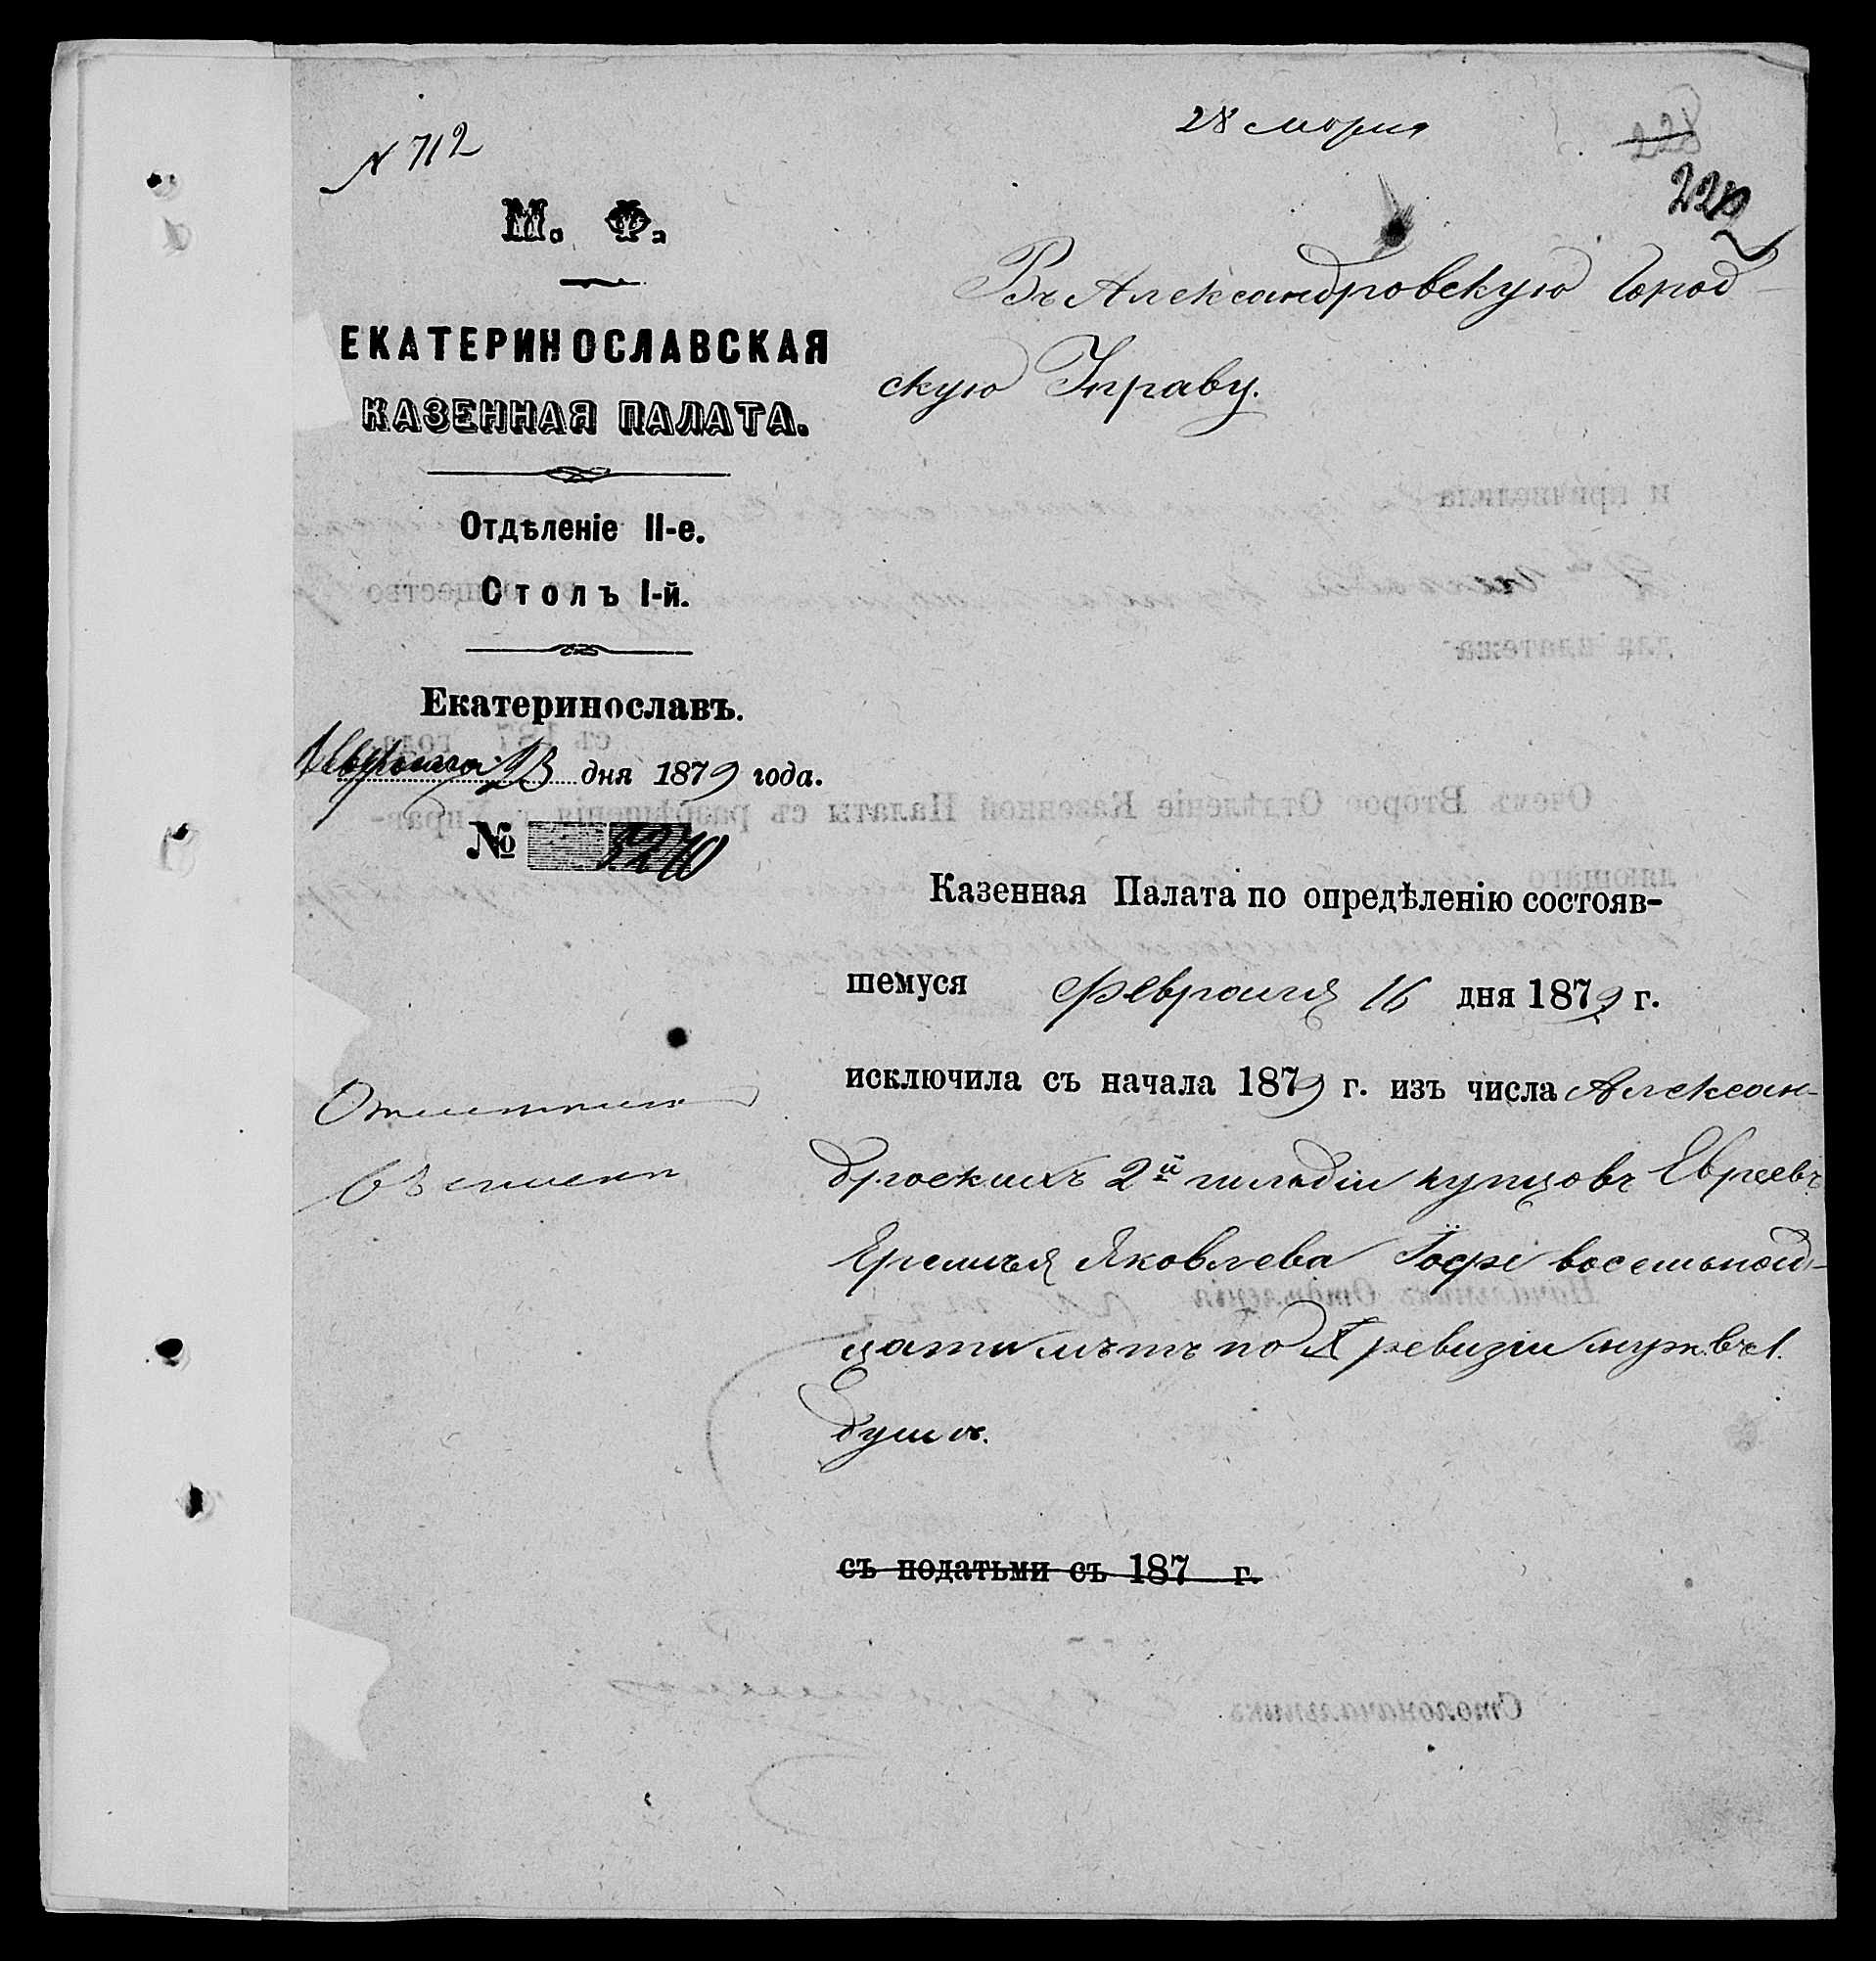 № 712
28 марта
228
229
М. Ф.
ЕКАТЕРИНОСЛАВСКАЯ
КАЗЕННАЯ ПАЛАТА.
Отдѣленіе II-е.
Столъ I-й.
Екатеринославъ.
Февраля 23 дня 1879 года.
№ 3240
Въ Александровскую Город-
скую Управу.
Казенная Палата по опредѣленію состояв-
шемуся Февраля 16 дня 1879 г.
исключила съ начала 1879 г. изъ числа Алексан-
дровскихъ 2й гильдіи купцовъ Евреевъ
Еремѣя Яковлева Іофе восемьнад-
цати лѣтъ по X ревизіи муж. въ 1.
душѣ.
съ податьми съ 187 г.
Отмѣтить
въ спискѣ